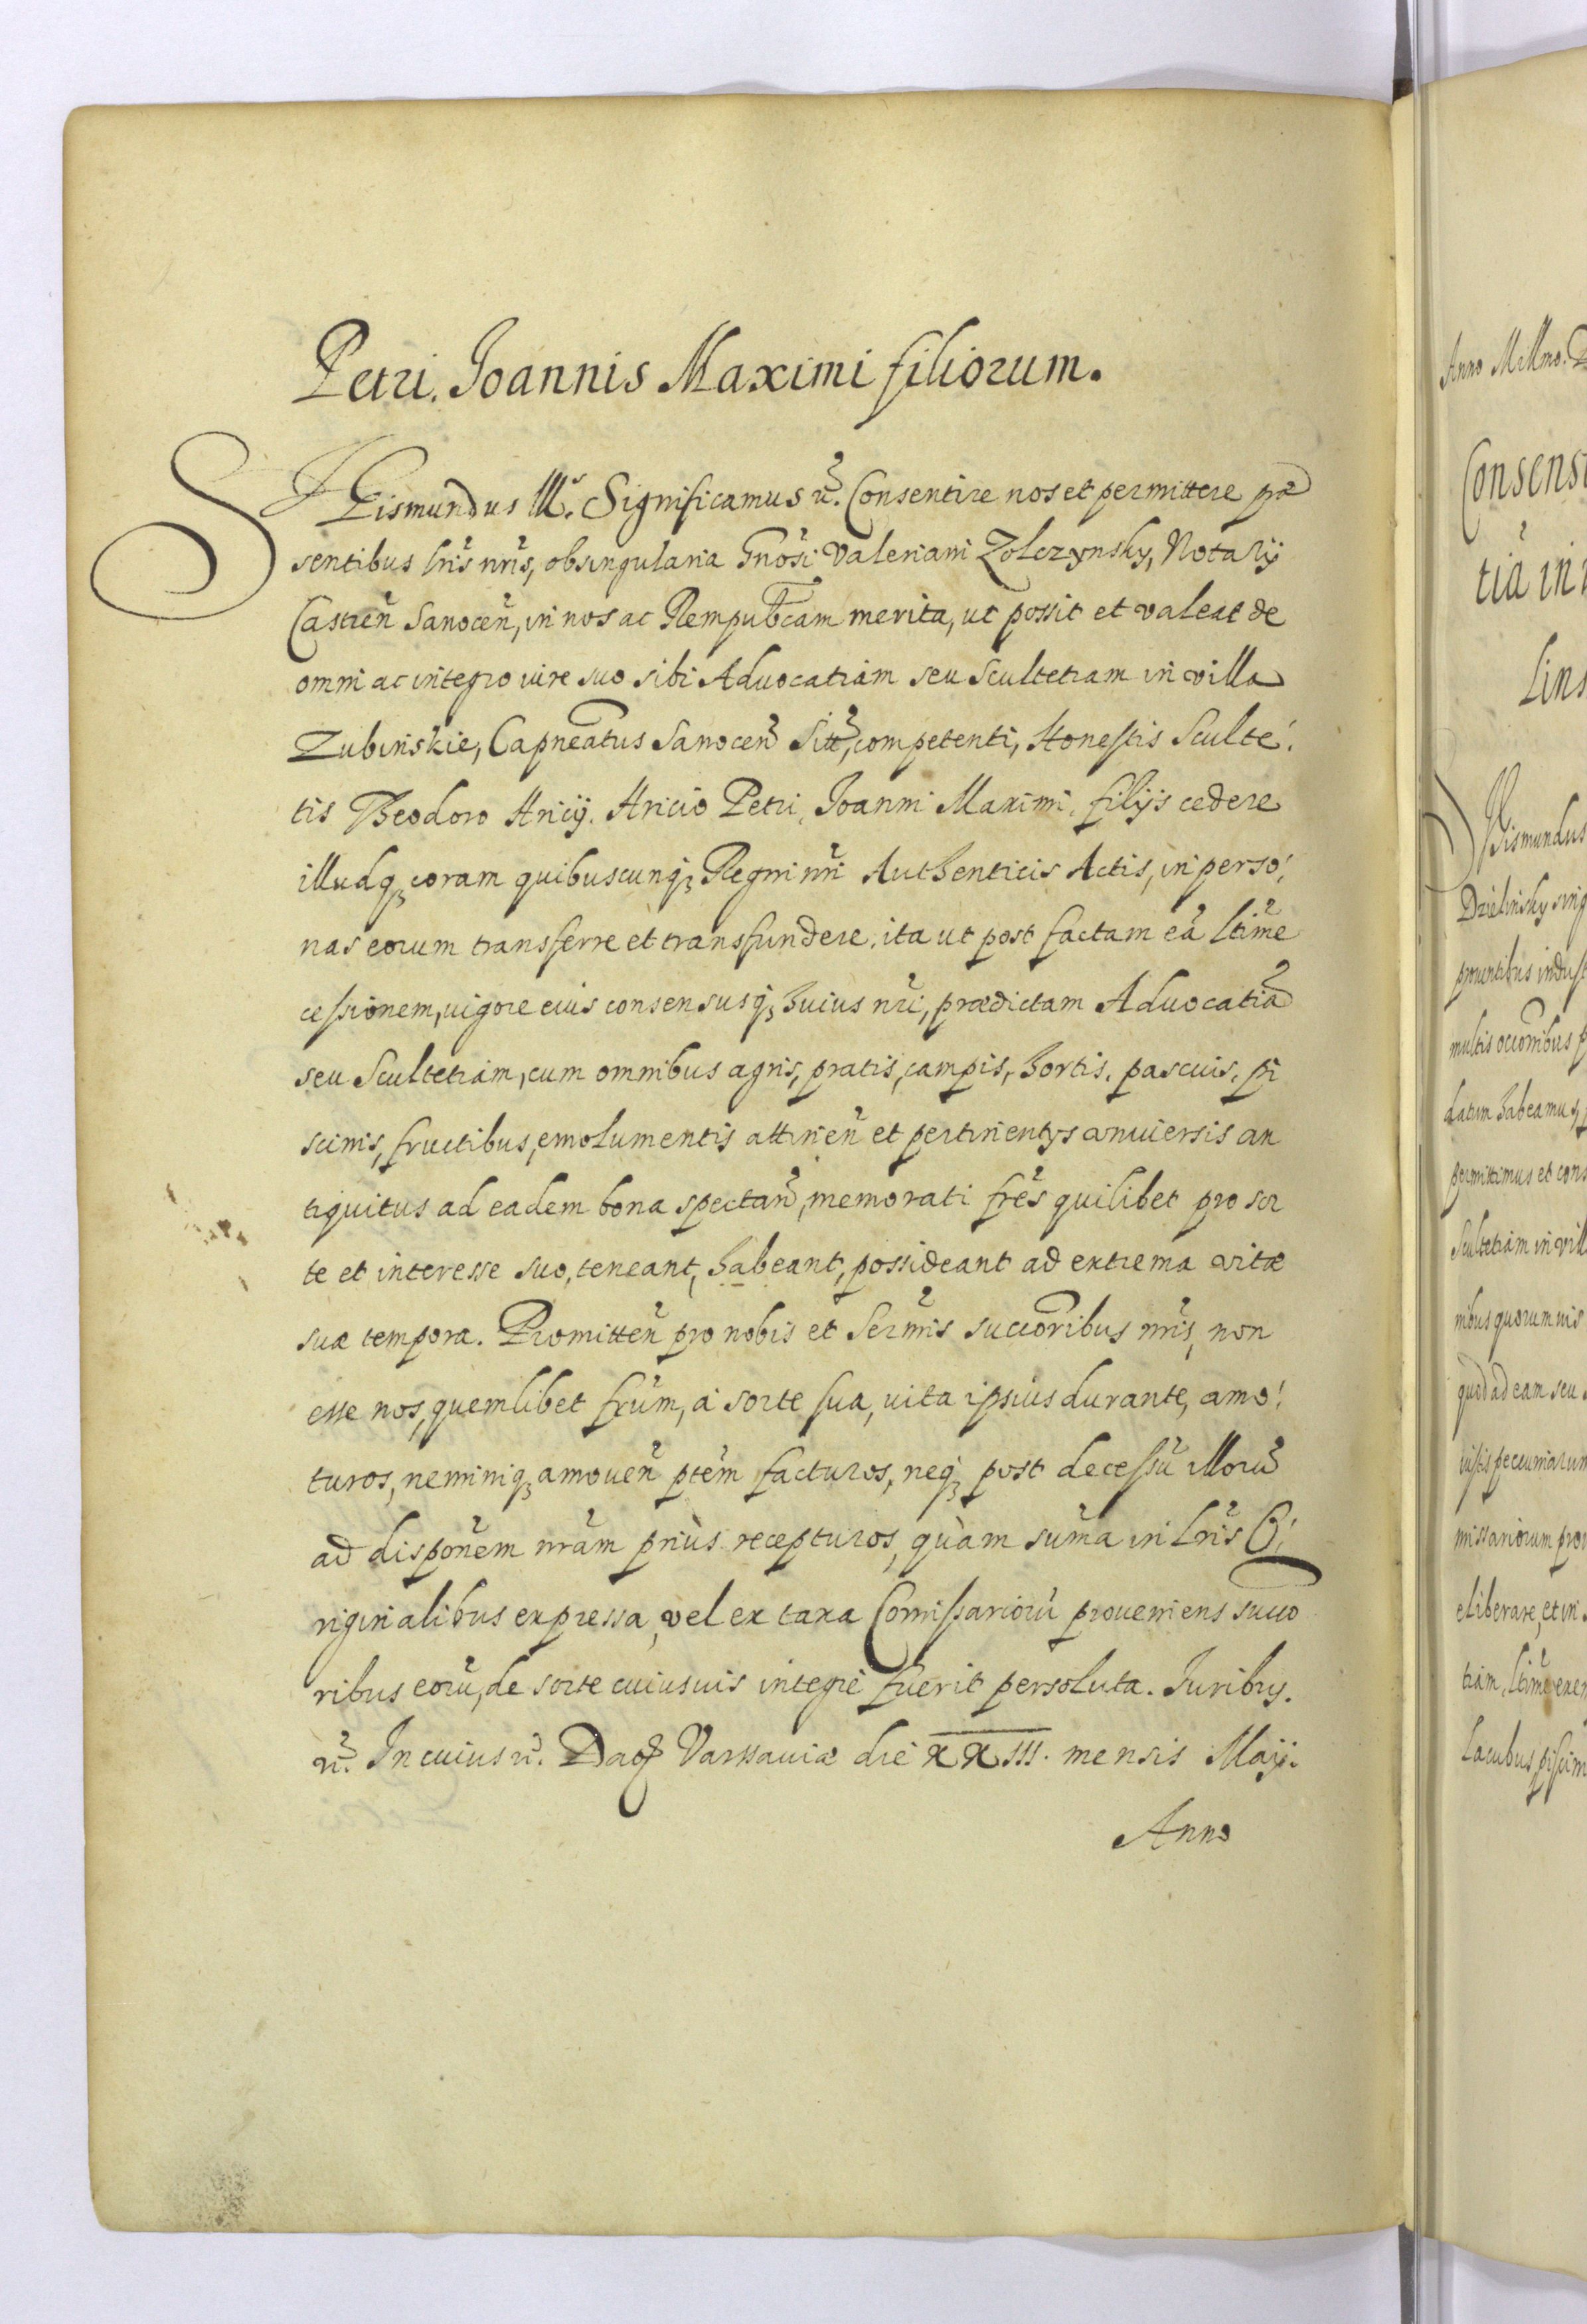 Petri. Joannis Maximi filiorum.
SIgismundus III. Significamus &c. Consentire nos et permittere præ
sentibus lris nris, ob singularia Gnosi Valeriani Zolczynsky, Notarij
Castren Sanocen, in nos ac Rempubcam merita, ut possit et valeat de
omni ac integro iure suo sibi Aduocatiam seu Scultetiam in villa
Zubinskie, Capneatus Sanocen Sitt, competenti, Honestis Sculte
tis Theodoro Hricij. Hricio Petri, Joanni Maximi, filijs cedere
illudq coram quibuscunq Regni nri Authenticis Actis, in perso
nas eorum transferre et transfundere. ita ut post factam eã ltime
cessionem, uigore eius consensusq huius nri, prædictam Aduocatiã
seu Scultetiam, cum omnibus agris, pratis, campis, hortis, pascuis, pi
scinis, fructibus, emolumentis attinen et pertinentys vniuersis an
tiquitus ad eadem bona spectan, memorati fres quilibet pro sor
te et interesse suo, teneant, habeant, possideant ad extrema vitæ
suæ tempora. Promitten pro nobis et Sermis succoribus nris, non
esse nos, quemlibet frum, à sorte sua, uita ipsius durante, amo
turos, neminiq amouen ptem facturos, neq post decessũ illorũ
ad disponem nram priùs recepturos, quàm suma in lris O
riginalibus expressa, vel ex taxa Comissariorũ proueniens succo
ribus eorũ, de sorte cuiusuis integrè fuerit persoluta. Juribus.
&c. In cuius &c. Dat Varssauiæ die XXIII. mensis Maij.
Anno
Anno Millmo. D
Consens
tiã in
Lins
Sigismundus
Dzielinsky sing
multis occonibus p
datum habeamus,
permittimus et cons
Scultetiam in vill
nibus quorumuis
quod ad eam seu
iustis pecuniarum
missariorum prou
eliberare, et in
tiam, ltime
Lacubus, piscin